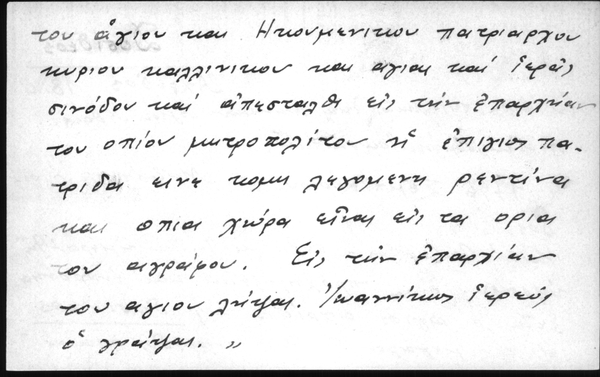 του ἁγιου και Ηκουμενικου πατριαρχου
κυριου καλλινικου και αγιας καί ἱερᾶς
σινόδου καί ἀπεσταλθι εἰς τήν ἐπαρχίαν
του οπίου μιτροπολίτου ἡ ἐπιγιος πα-
τρίδα εινε κομι λεγομενη ρεντίνα
και οπια χώρα εἶναι εἰς τα ορια
του αγράφου. Εἰς τήν ἐπαρχίαν
του αγιου λιτζας. Ἰωαννίκιος ἱερεύς
ὁ γράψας. „